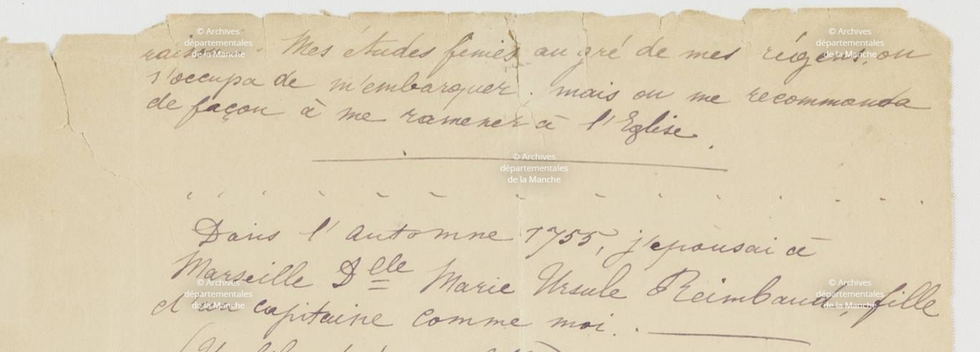 Mes études finies au gré de mes régens, on
s'occupa de m'embarquer. mais on me recommanda
de façon à me ramener à l'Eglise.
Dans l'automne 1755, j'épousai à
Marseille Dlle Marie Ursule Reimbaud, fille
d'un capitaine comme moi.
© Archives
départementales
de la Manche
© Archives
départementales
de la Manche
© Archives
départementales
de la Manche
© Archives
départementales
de la Manche
© Archives
départementales
de la Manche